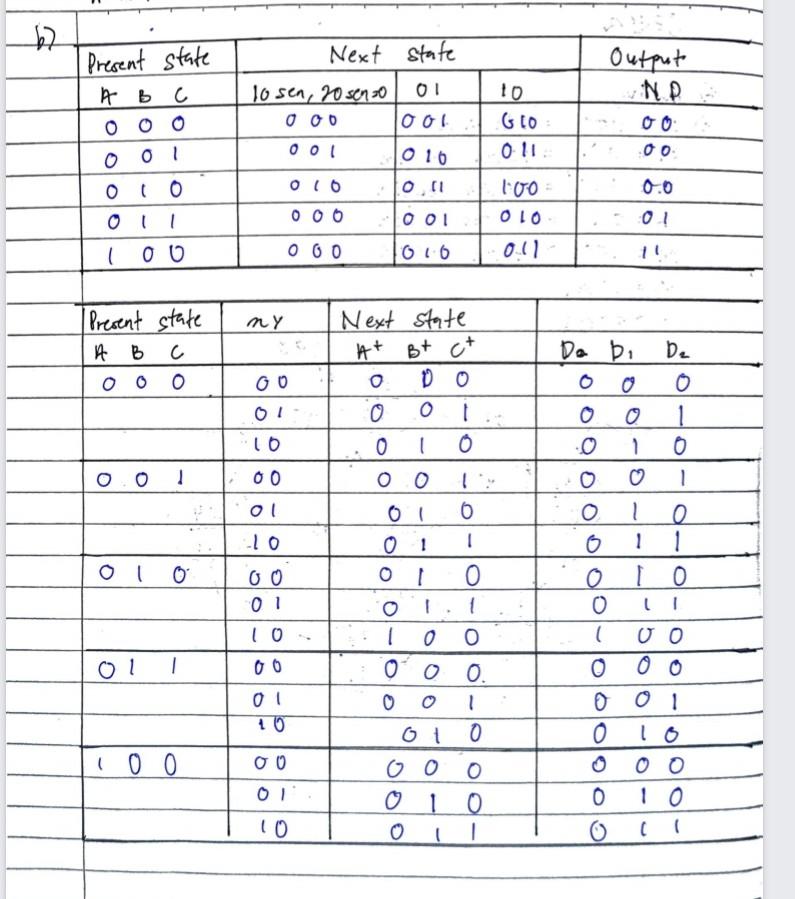 b)
Present state Next state Output
A B C 10 sen, 20 sen=0 01 10 N D
0 0 0 0 0 0 0 0 1 0 1 0 0 0
0 0 1 0 0 1 0 1 0 0 1 1 0 0
0 1 0 0 1 0 0 1 1 1 0 0 0 0
0 1 1 0 0 0 0 0 1 0 1 0 0 1
1 0 0 0 0 0 0 1 0 0 1 1 1 1
Present state xy Next state
A B C A+ B+ C+ D0 D1 D2
0 0 0 0 0 0 0 0 0 0 0
0 1 0 0 1 0 0 1
1 0 0 1 0 0 1 0
0 0 1 0 0 0 0 1 0 0 1
0 1 0 1 0 0 1 0
1 0 0 1 1 0 1 1
0 1 0 0 0 0 1 0 0 1 0
0 1 0 1 1 0 1 1
1 0 1 0 0 1 0 0
0 1 1 0 0 0 0 0 0 0 0
0 1 0 0 1 0 0 1
1 0 0 1 0 0 1 0
1 0 0 0 0 0 0 0 0 0 0
0 1 0 1 0 0 1 0
1 0 0 1 1 0 1 1